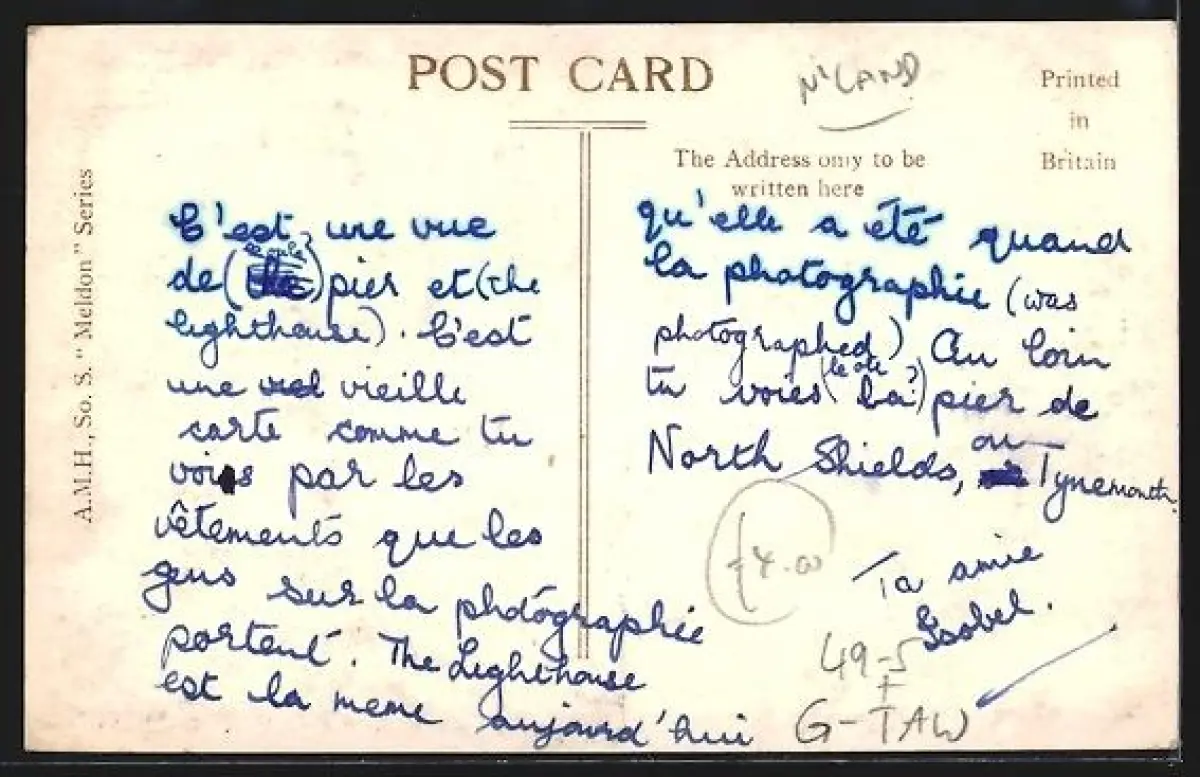 POST CARD
N'LAND
Printed
in
Britain
The Address only to be
written here
A.M.H., So. S. "Meldon" Series
C'est une vue
de ( ) pier et (the
lighthouse). C'est
une vieille
carte comme tu
vois par les
vêtements que les
gens sur la photographie
portent. The Lighthouse
est la meme aujourd'hui
qu'elle a été quand
la photographie (was
photographed) Au loin
tu voies (la?) pier de
North Shields, ou Tynemouth.
Ta amie
Isobel.
£4.00
49-5
F
G-TAW